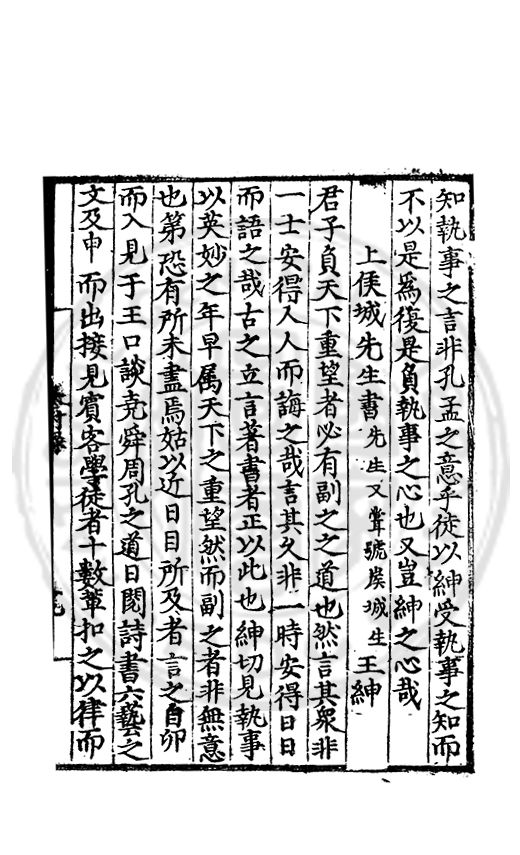 知執事之言非孔孟之意乎徒以紳受執事之知而
不以是爲復是負執事之心也又豈紳之心哉
上侯城先生書先生又嘗號侯城生 王紳
君子負天下重望者必有副之之道也然言其衆非
一士安得人人而誨之哉言其久非一時安得日日
而語之哉古之立言著書者正以此也紳切見執事
以英妙之年早屬天下之重望然而副之者非無意
也第恐有所未盡焉姑以近日目所及者言之自卯
而入見于王口談堯舜周孔之道日閱詩書六藝之
文及申而出接見賓客學徒者十數輩扣之以律而